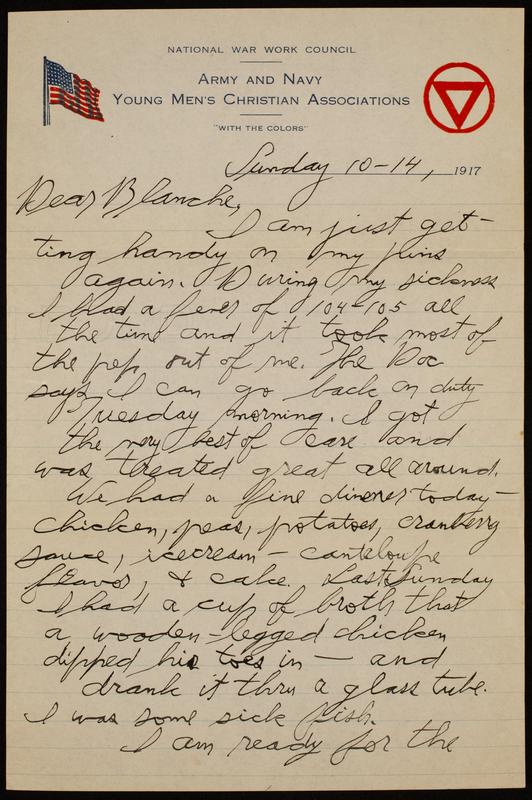 NATIONAL WAR WORK COUNCIL
ARMY AND NAVY
YOUNG MEN'S CHRISTIAN ASSOCIATIONS
"WITH THE COLORS"
Sunday 10-14, 1917
Dear Blanche,
I am just get-
ting handy on my pins
again. During my sickness
I had a fever of 104-105 all
the time and it took most of
the pep out of me. The Doc
says I can go back on duty
Tuesday morning. I got
the very best of care and
was treated great all around.
We had a fine dinner today-
chicken, peas, potatoes, cranberry
sauce, icecream - canteloupe
flavor, & cake. Last Sunday
I had a cup of broth that
a wooden-legged chicken
dipped his toes in - and
drank it thru a glass tube.
I was some sick fish.
I am ready for the